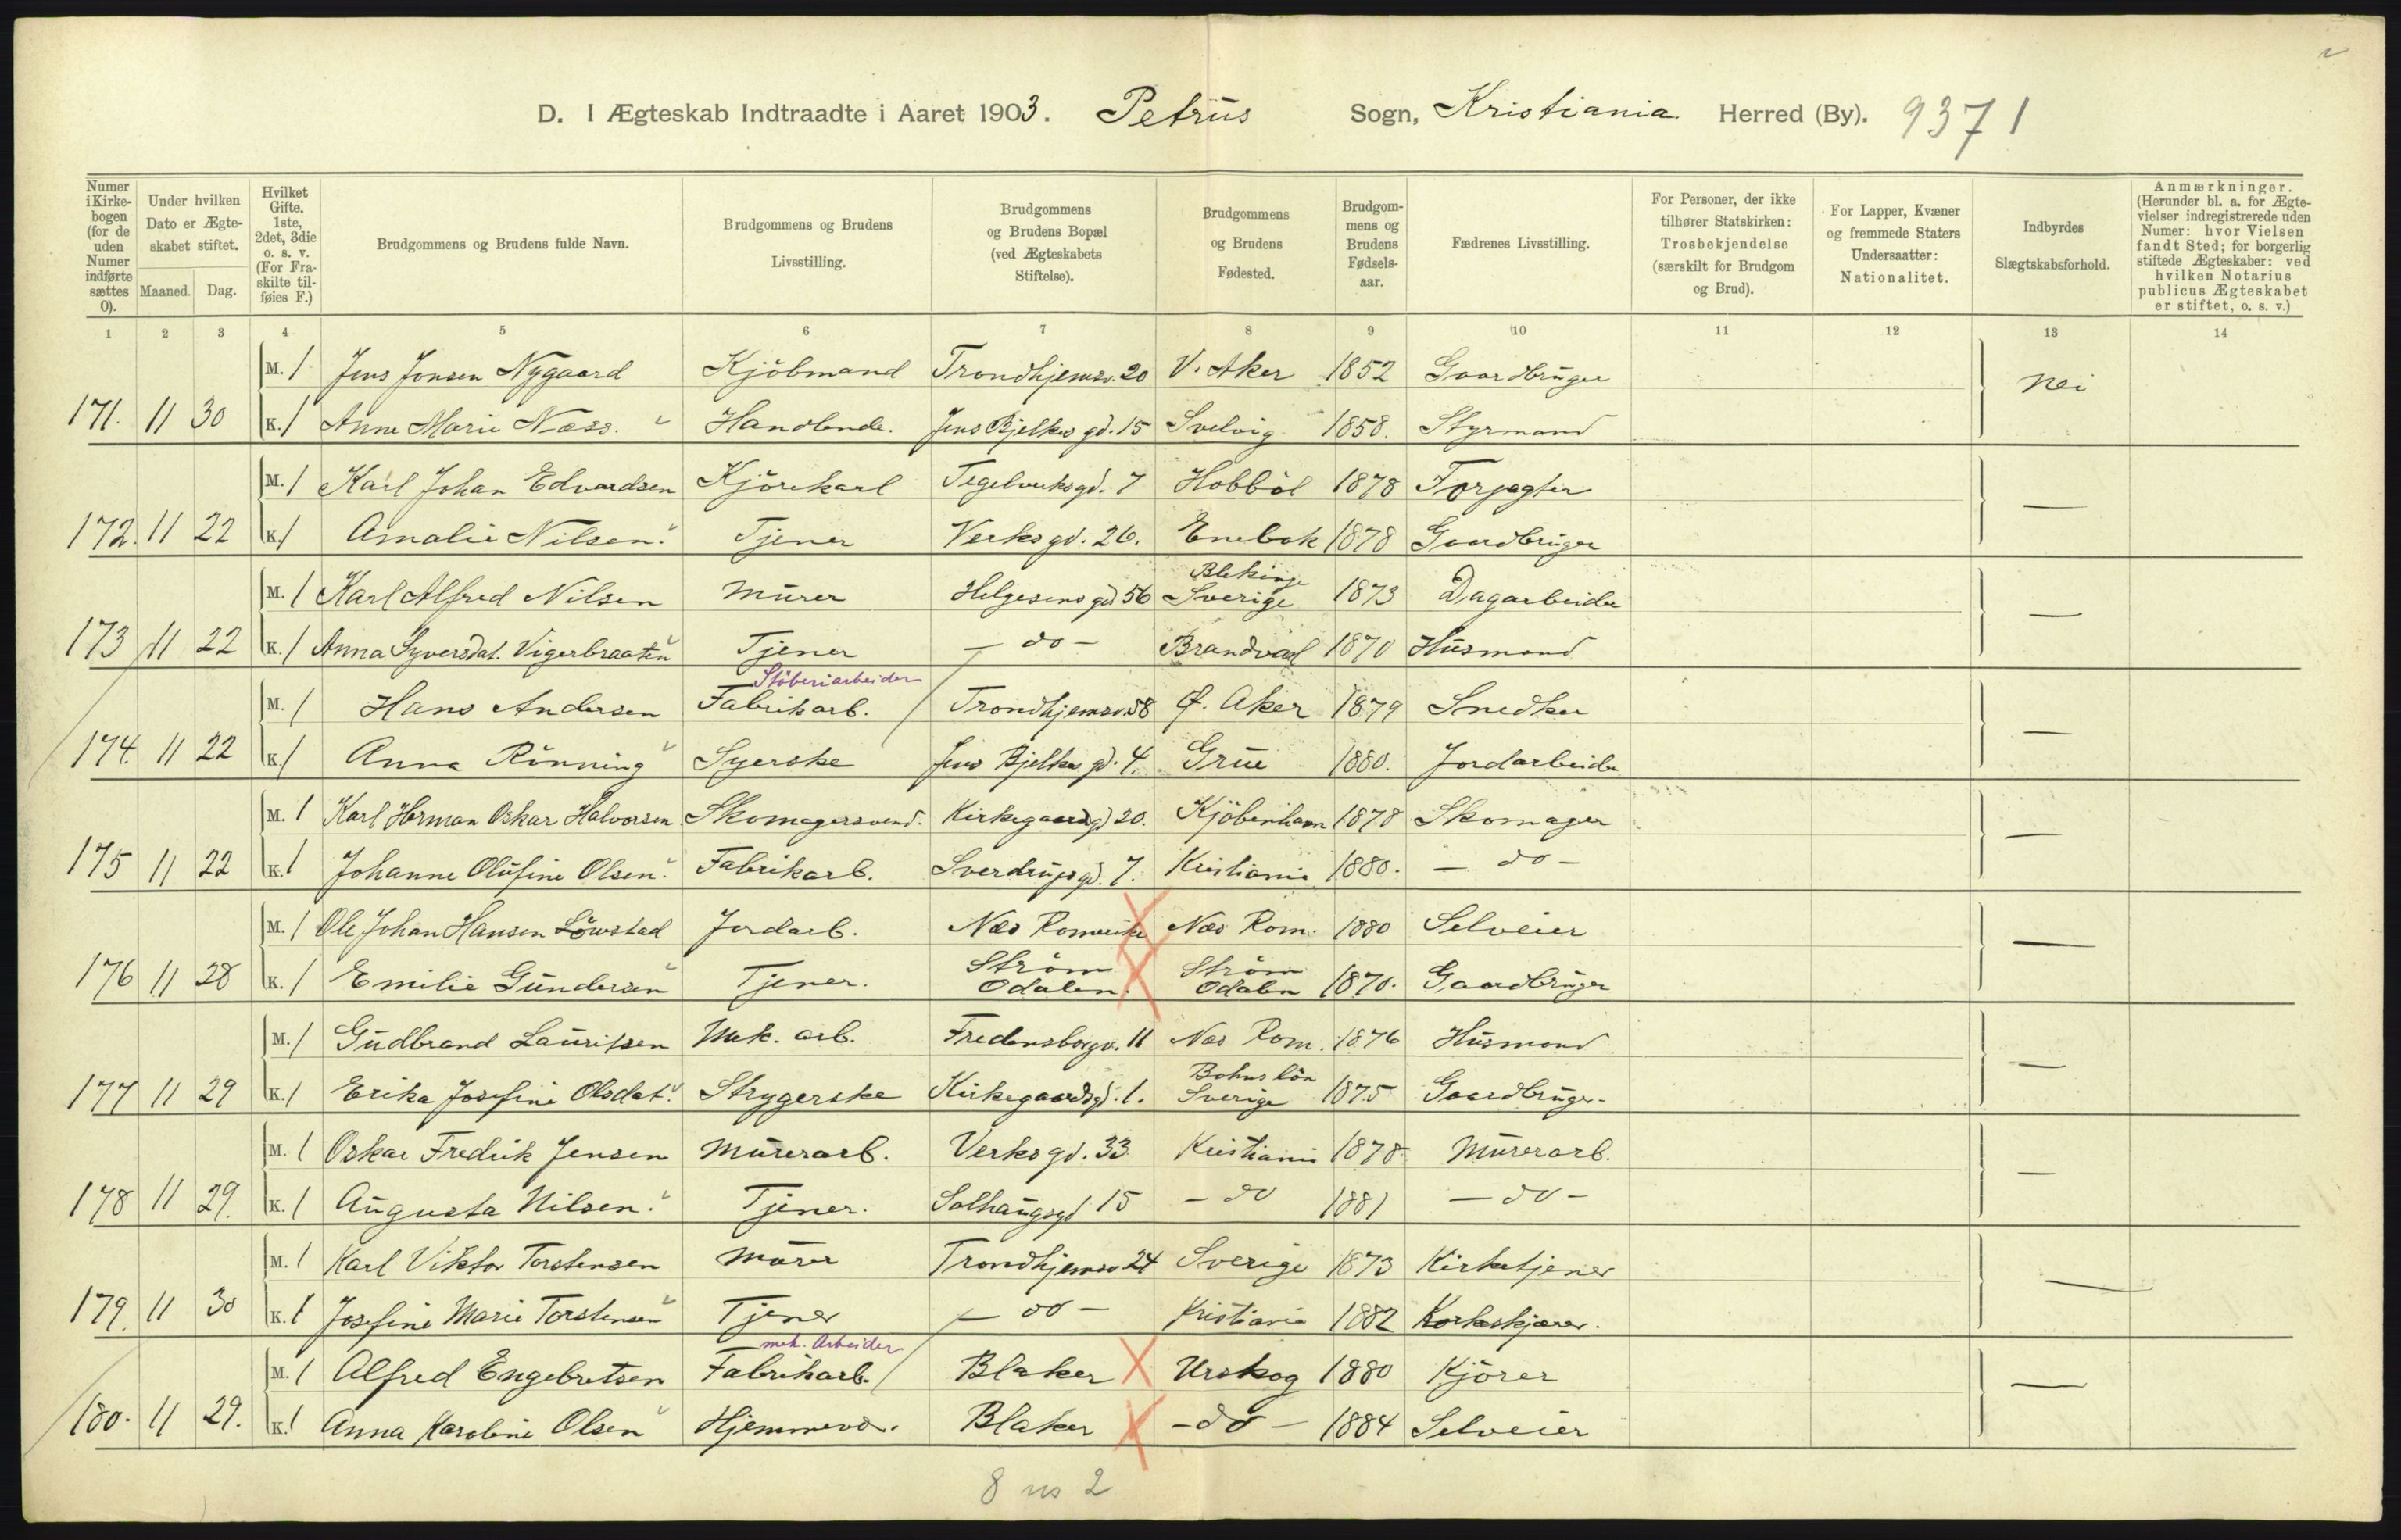 D. I Ægteskab Indtraadte i Aaret 1903. Petrus Sogn, Kristiania Herred (By). 9371
Numer i Kirkebogen (for de uden Numer indførte sættes 0).
Under hvilken Dato er Ægteskabet stiftet.
Maaned. Dag.
Hvilket Gifte. 1ste, 2det, 3die o. s. v. (For Fraskilte tilføies F.)
Brudgommens og Brudens fulde Navn.
Brudgommens og Brudens Livsstilling.
Brudgommens og Brudens Bopæl (ved Ægteskabets Stiftelse).
Brudgommens og Brudens Fødested.
Brudgommens og Brudens Fødselsaar.
Fædrenes Livsstilling.
For Personer, der ikke tilhører Statskirken: Trosbekjendelse (særskilt for Brudgom og Brud).
For Lapper, Kvæner og fremmede Staters Undersaatter: Nationalitet.
Indbyrdes Slægtskabsforhold.
Anmærkninger. (Herunder bl. a. for Ægtevielser indregistrerede uden Numer: hvor Vielsen fandt Sted; for borgerlig stiftede Ægteskaber: ved hvilken Notarius publicus Ægteskabet er stiftet, o. s. v.)
1 2 3 4 5 6 7 8 9 10 11 12 13 14
M. 1 Jens Jonsen Nygaard Kjöbmand Trondhjemsv. 20 V. Aker 1852 Gaardbruger nei
171. 11 30 K. 1 Anne Marie Næss. Handlende. Jens Bjelkes gd. 15 Svelvig 1858. Styrmand
M. 1 Karl Johan Edvardsen Kjörekarl Tegelverksgd. 7 Hobböl 1878 Forpagter
172. 11 22 K. 1 Amalie Nilsen. Tjener Verksgd. 26. Enebak 1878 Gaardbruger —
M. 1 Karl Alfred Nilsen Murer Helgesens gd 56 Blekinge Sverige 1873 Dagarbeider
173 11 22 K. 1 Anna Syversdat. Vigerbraaten Tjener — do — Brandval 1870 Husmand —
Stöberiarbeider
M. 1 Hans Andersen Fabrikarb. Trondhjemsv. 58 Ø. Aker 1879 Snedker
174. 11 22 K. 1 Anna Rönning Syerske Jens Bjelkes gd. 4. Grue 1880. Jordarbeider —
M. 1 Karl Herman Oskar Halvorsen Skomagersvend. Kirkegaardsgd 20. Kjöbenhavn 1878 Skomager
175 11 22 K. 1 Johanne Olufine Olsen. Fabrikarb. Sverdrupsgd. 7. Kristiania 1880. — do — —
M. 1 Ole Johan Hansen Löwstad Jordarb. Nes Romerike Nes Rom. 1880 Selveier
176 11 28 K. 1 Emilie Gundersen Tjener. Ström Odalen. Ström Odalen 1870. Gaardbruger —
M. 1 Gudbrand Lauritsen Mek. arb. Fredensborgv. 11 Nes Rom. 1876 Husmand
177 11 29 K. 1 Erika Josefine Olsdat. Strygerske Kirkegaardsgd. 1. Bohuslän Sverige 1875 Gaardbruger. —
M. 1 Oskar Fredrik Jensen Murerarb. Verksgd. 33 Kristiania 1878 Murerarb.
178 11 29. K. 1 Augusta Nilsen. Tjener. Solhaugsgd 15 — do 1881 — do — —
M. 1 Karl Viktor Torstensen Murer Trondhjemsv. 24 Sverige 1873 Kirketjener
179. 11 30 K. 1 Josefine Marie Torstensen Tjener — do — Kristiania 1882 Korkskjærer. —
mek. Arbeider
M. 1 Alfred Engebretsen Fabrikarb. Blaker Urskog 1880 Kjörer
180. 11 29. K. 1 Anna Karoline Olsen Hjemmevær. Blaker — do — 1884 Selveier —
8 ns 2